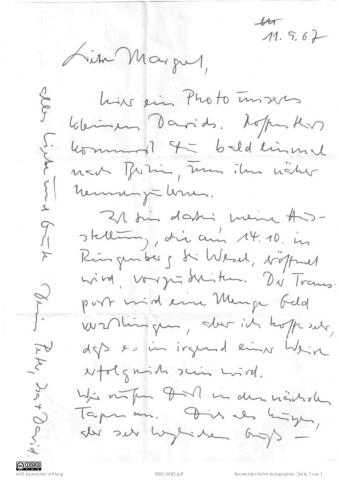 11.9.67
Liebe Margret,
hier ein Photo unseres
kleinen Davids. Hoffentlich
kommst Du bald einmal
nach Berlin, um ihn näher
kennenzulernen.
Ich bin dabei meine Aus-
stellung, die am 14.10. in
Ringenberg bei Wesel, eröffnet
wird, vorzubereiten. Der Trans-
port wird eine Menge Geld
verschlingen, aber ich hoffe sehr,
daß es in irgend einer Weise
erfolgreich sein wird.
Wir rufen Dich in den nächsten
Tagen an. Dies als kurzen,
aber sehr herzlichen Gruß –
alles Liebe und Gute Dein Peter, Isa + David.